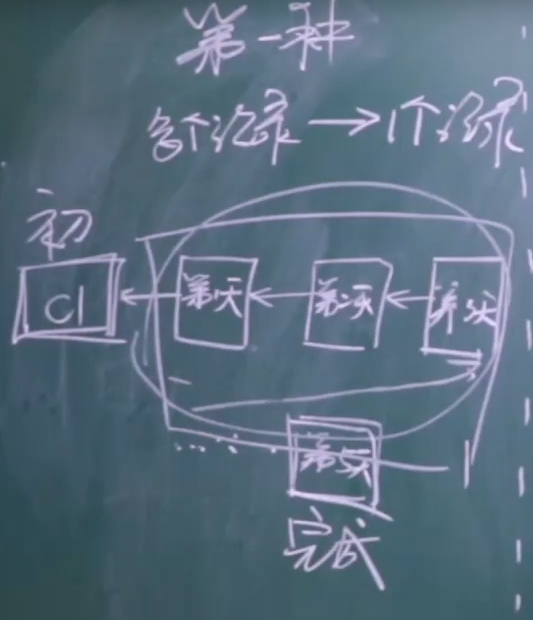 第一种
多个记录→1个记录
初
C1
第1天
第二天
第3天
......
第5天
完成